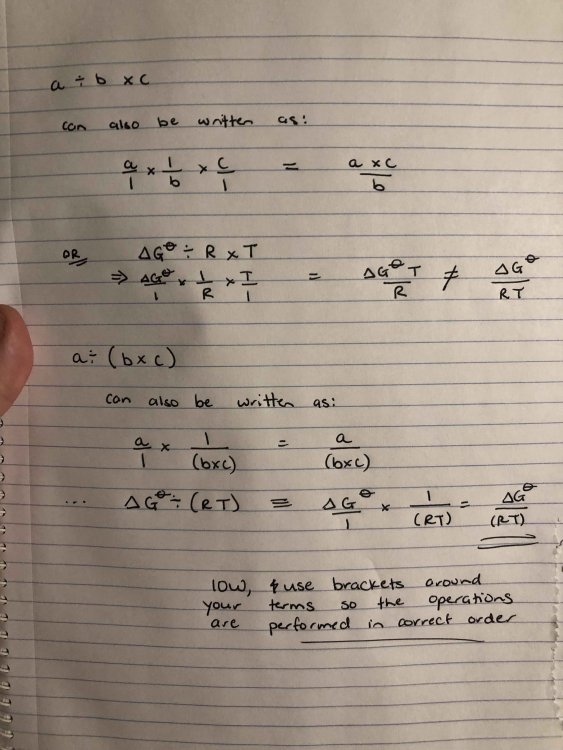 a ÷ b × c
can also be written as:
a/1 × 1/b × c/1 = a × c/b
OR ΔG⊖ ÷ R × T
⇒ ΔG⊖/1 × 1/R × T/1 = ΔG⊖T/R ≠ ΔG⊖/RT
a ÷ (b × c)
can also be written as:
a/1 × 1/(b×c) = a/(b×c)
... ΔG⊖ ÷ (RT) ≡ ΔG⊖/1 × 1/(RT) = ΔG⊖/(RT)
IOW, & use brackets around
your terms so the operations
are performed in correct order